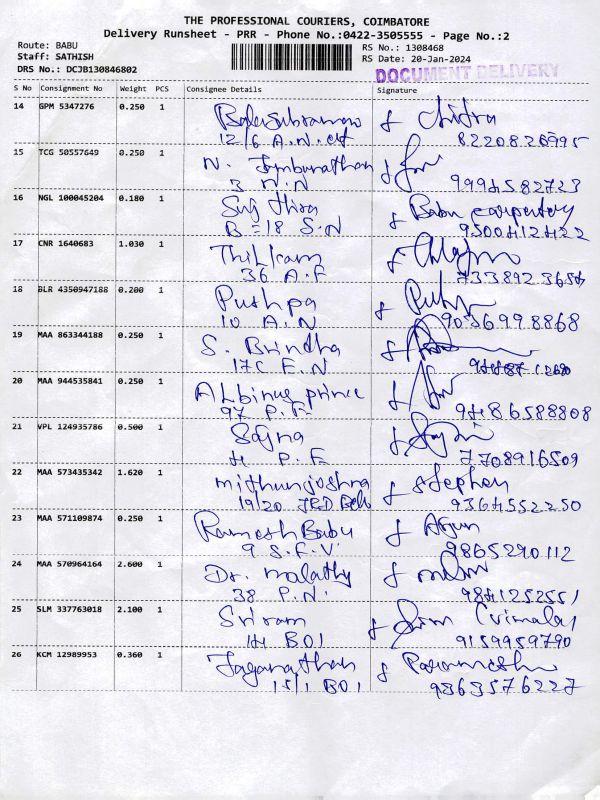 THE PROFESSIONAL COURIERS, COIMBATORE
Delivery Runsheet - PRR - Phone No.:0422-3505555 - Page No.:2
Route: BABU
Staff: SATHISH
DRS No.: DCJB130846802
RS No.: 1308468
RS Date: 20-Jan-2024
DOCUMENT DELIVERY
S No Consignment No Weight PCS Consignee Details Signature
14 GPM 5347276 0.250 1 Balasubraman & Chitra
12/6 A.N. 8220826995
15 TCG 50557649 0.250 1 N. &
3 N.N 9994582723
16 NGL 100045204 0.180 1 & Babu carpentery
B=18 S.N 9500412422
17 CNR 1640683 1.030 1 &
36 A.F 7338923654
18 BLR 4350947188 0.200 1 Pushpa &
10 A.N 9036998868
19 MAA 863344188 0.250 1 S. Brindha &
17C F.N
20 MAA 944535841 0.250 1 Albinus prince &
97 P.F. 9486588808
21 VPL 124935786 0.500 1 Sajna &
4 P.F 7708916509
22 MAA 573435342 1.620 1 mithunjoshna & Stephen
19/20 9364552250
23 MAA 571109874 0.250 1 Ramesh Babu & Arjun
9 S.F.V 9865290112
24 MAA 570964164 2.600 1 Dr. malathy &
38 P.N. 9841252551
25 SLM 337763018 2.100 1 Sriram & (Vimala)
14 BOI 9159959790
26 KCM 12989953 0.360 1 Jaganathan &
15/1 BOI 9363576227